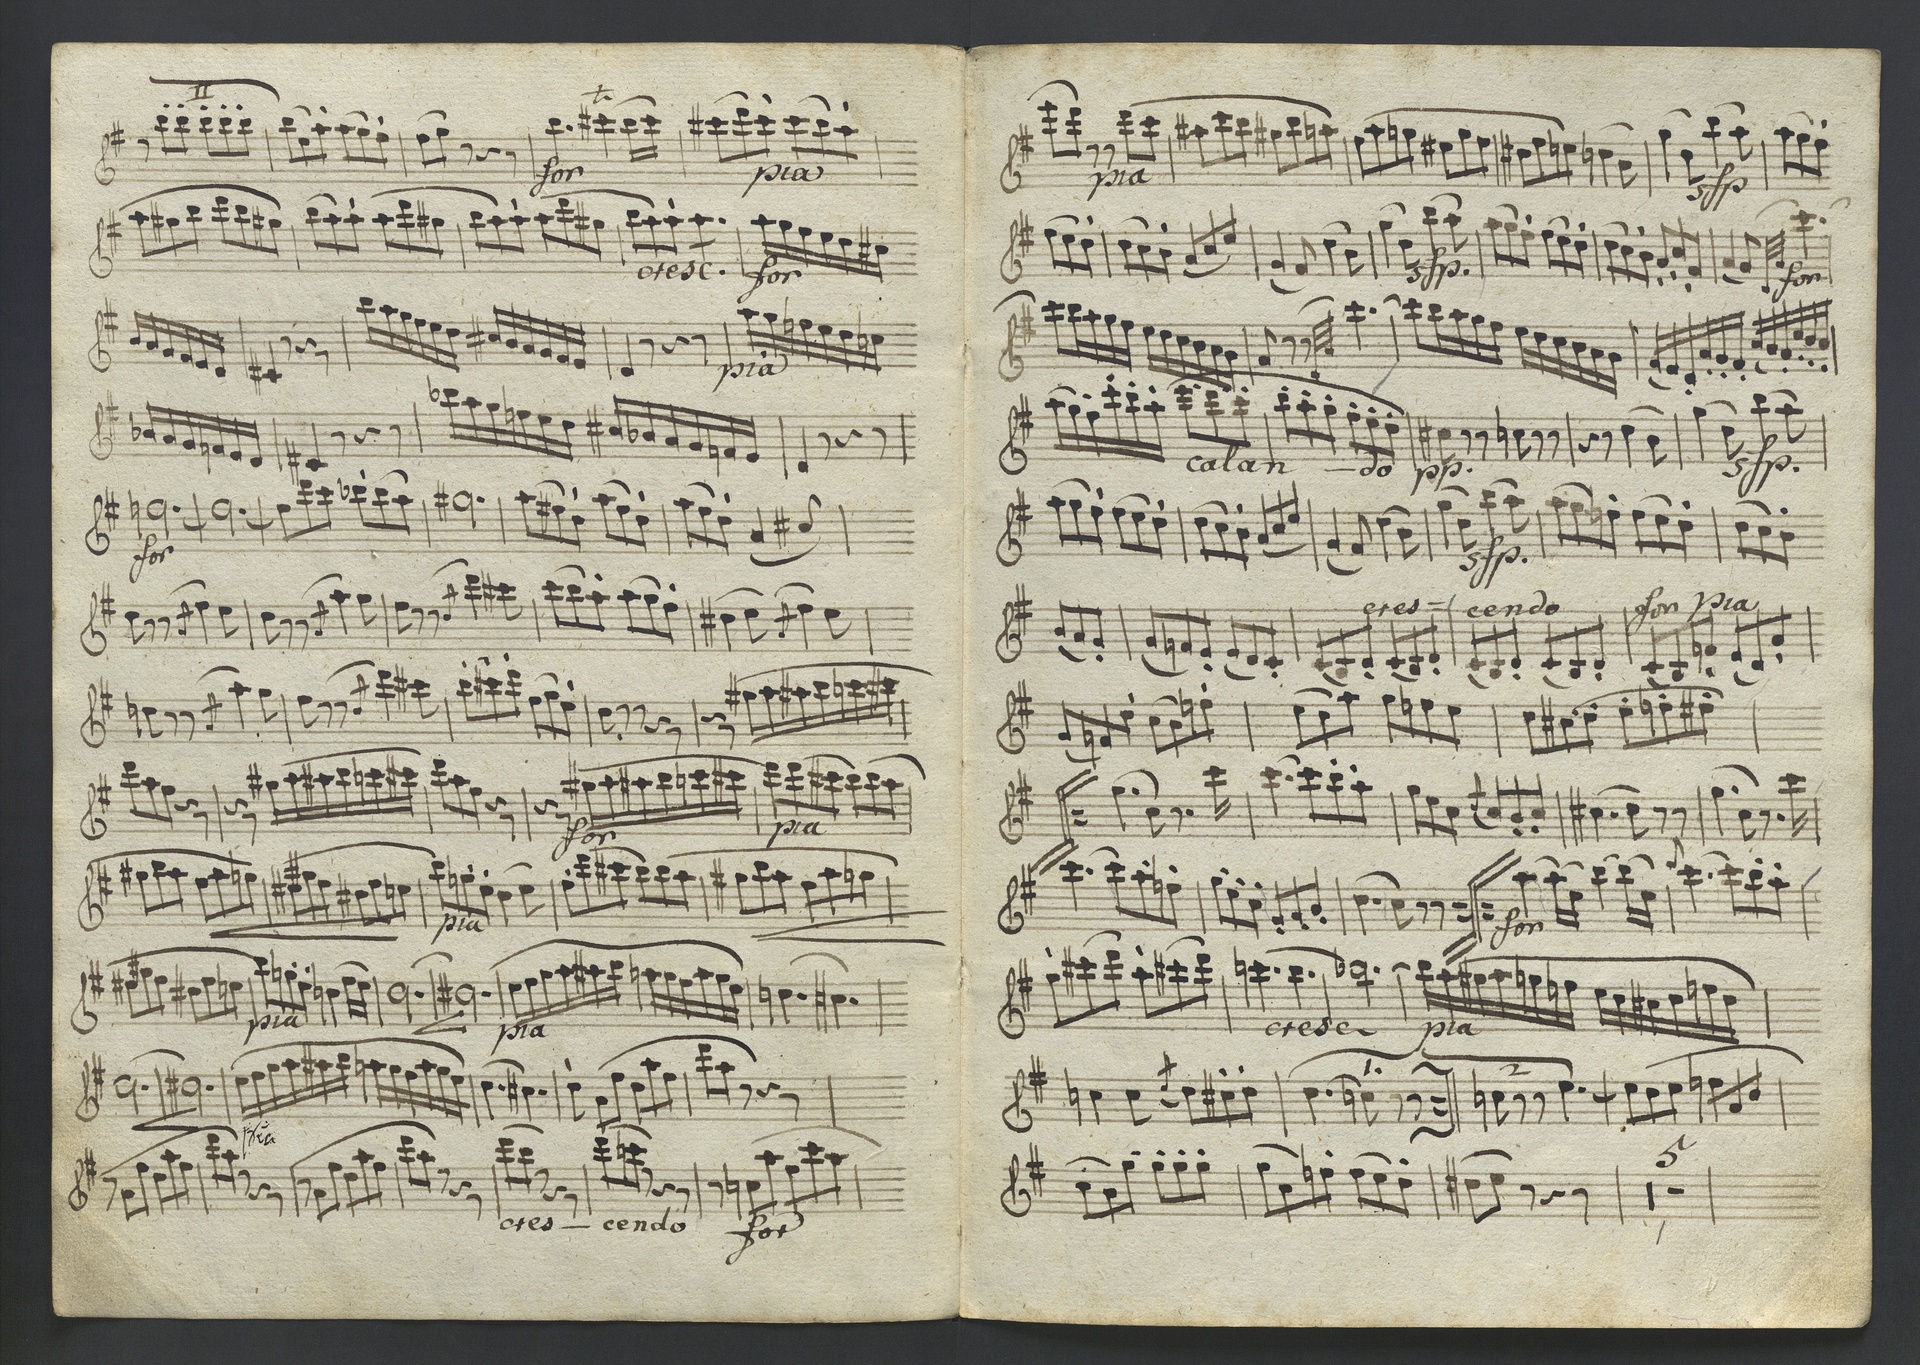 II
tr
for pia
cresc. for
pia
for
for pia
pia
pia pia
pia
cres — cendo for
pia sfp
sfp. for
calan — do pp. sfp.
sfp.
cres = cendo for pia
for
cresc pia
1. 2
5
1